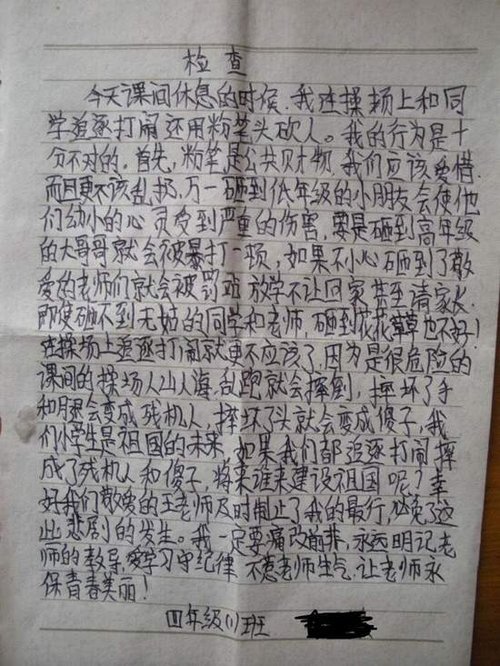 检查
今天课间休息的时候,我在操场上和同
学追逐打闹还用粉笔头砍人。我的行为是十
分不对的。首先,粉笔是公共财物,我们应该爱惜.
而且更不该乱扔,万一砸到低年级的小朋友会使他
们幼小的心灵受到严重的伤害,要是砸到高年级
的大哥哥就会被暴打一顿,如果不小心砸到了敬
爱的老师们就会被罚站 放学不让回家甚至请家长.
即使砸不到无辜的同学和老师,砸到花花草草也不好!
在操场上追逐打闹就更不应该了,因为是很危险的
课间的操场人山人海,乱跑就会摔倒,摔坏了手
和腿会变成残机人,摔坏了头就会变成傻子,我
们小学生是祖国的未来,如果我们都追逐打闹摔
成了残机人和傻子,将来谁来建设祖国呢?幸
好我们敬爱的王老师及时制止了我的暴行,必免了这
此悲剧的发生。我一定要痛改前非,永远明记老
师的教导,爱学习守纪律 不惹老师生气,让老师永
保青春美丽!
四年级(1)班